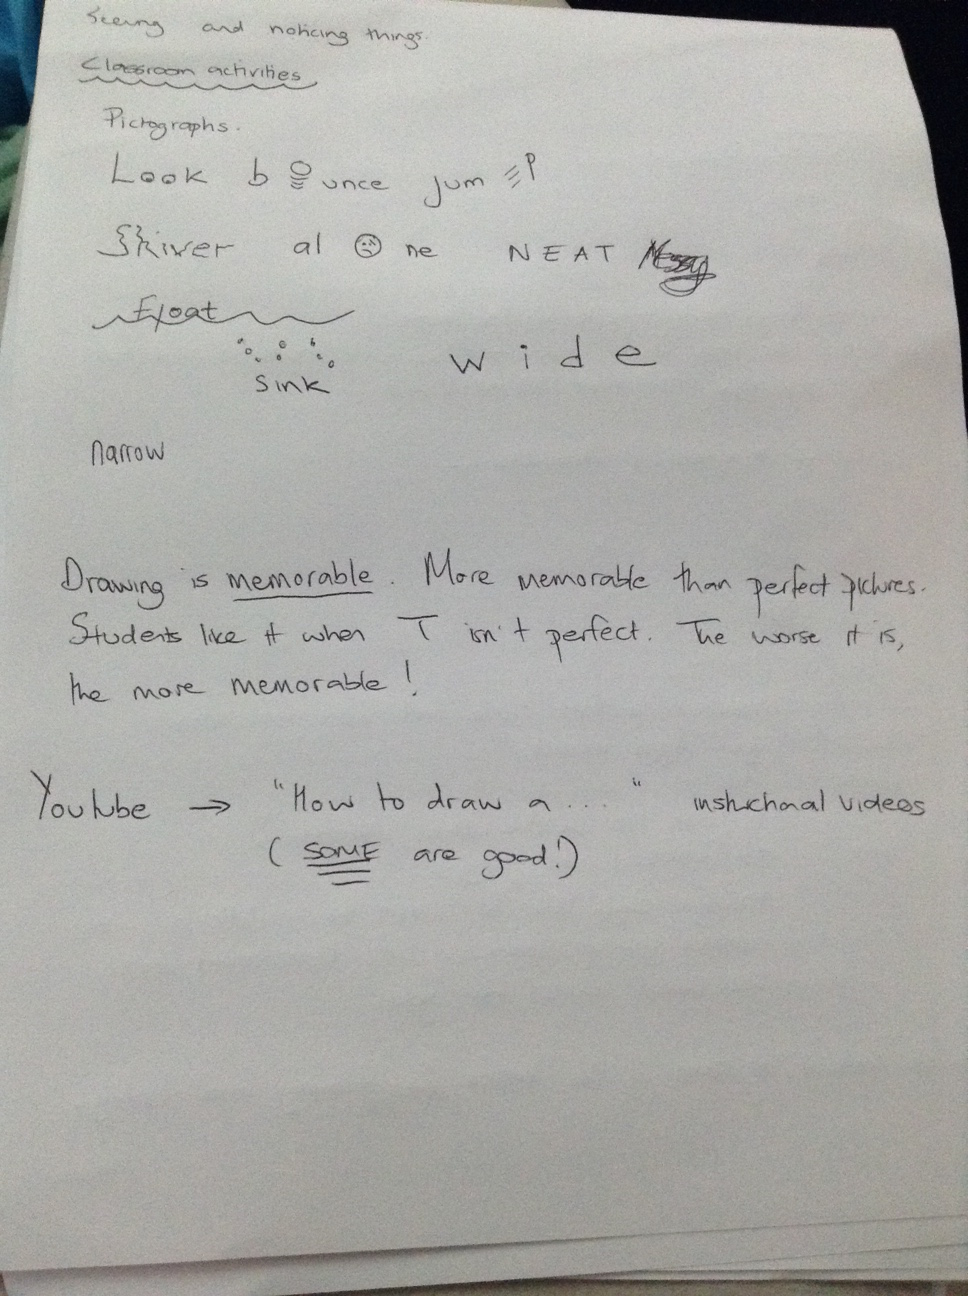 Seeing and noticing things.
Classroom activities
Pictographs.
Look bounce jump
Shiver alone NEAT Messy
float
sink wide
narrow
Drawing is memorable. More memorable than perfect pictures.
Students like it when T isn't perfect. The worse it is,
the more memorable!
Youtube → "How to draw a ..." instructional videos
(SOME are good!)